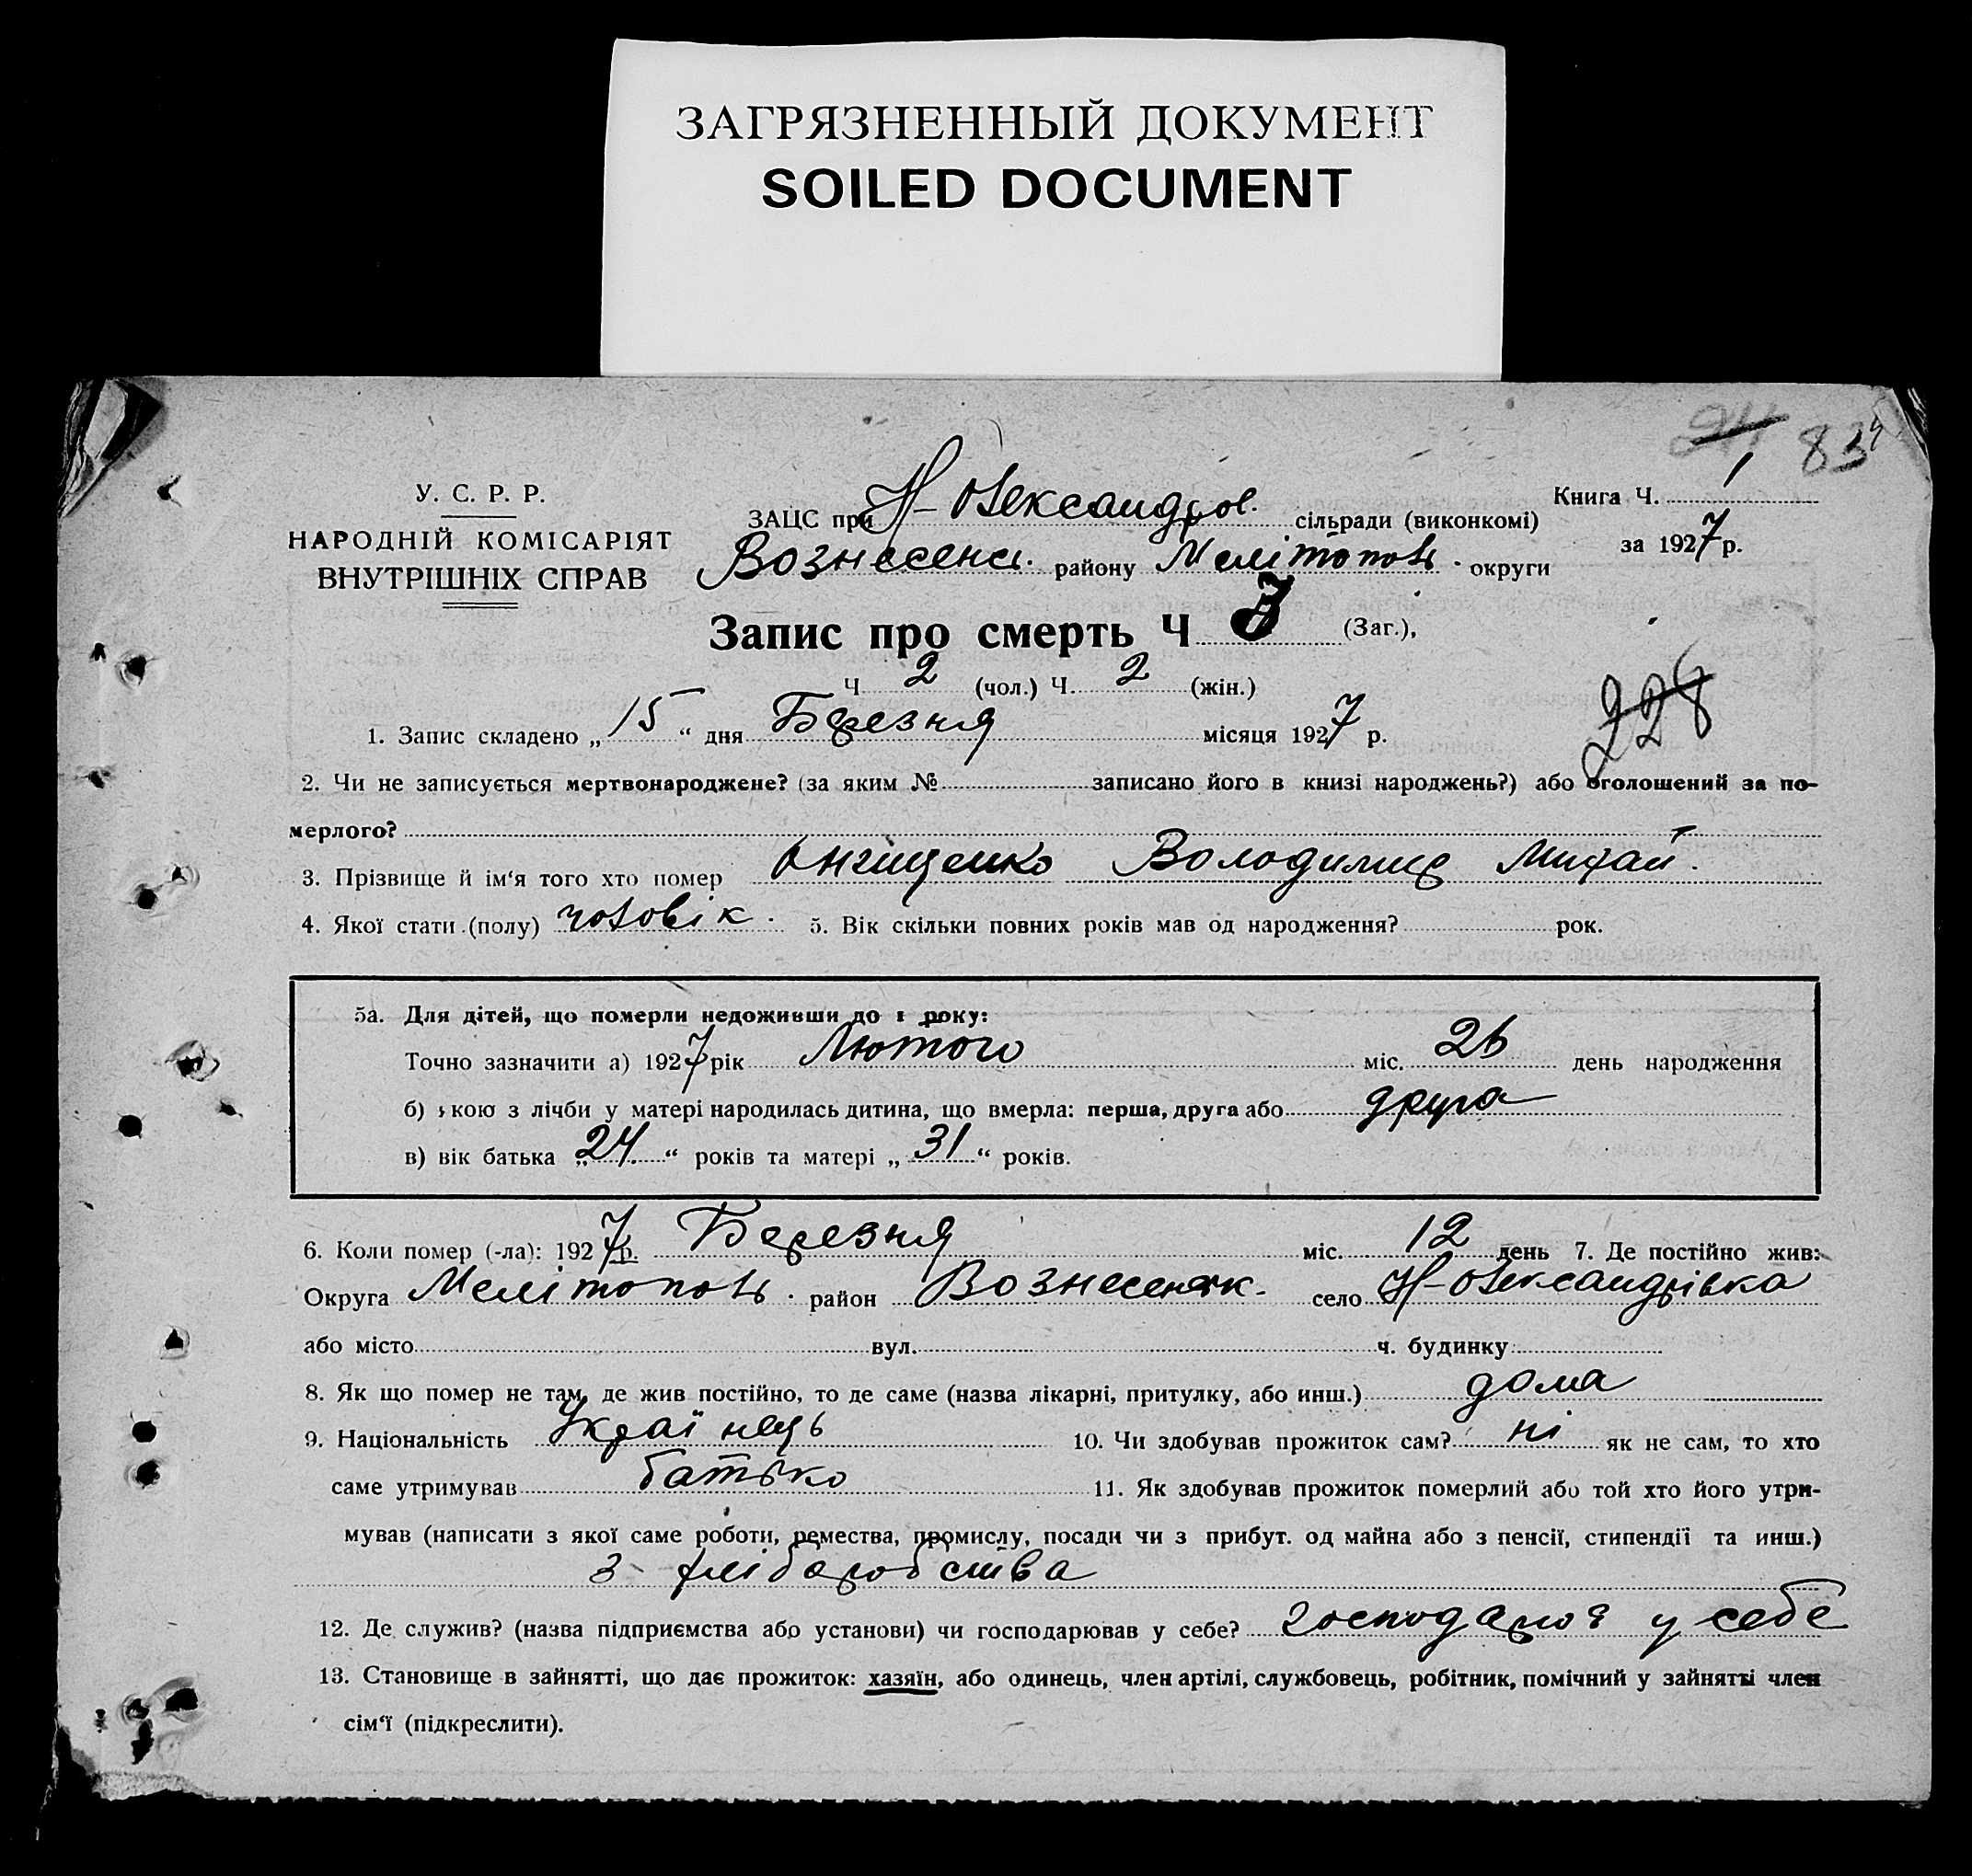 ЗАГРЯЗНЕННЫЙ ДОКУМЕНТ
SOILED DOCUMENT
24 83
У. С. Р. Р.
НАРОДНІЙ КОМІСАРІЯТ
ВНУТРІШНІХ СПРАВ
Книга Ч. 1
за 1927 р.
ЗАЦС при Н-Олександров. сільради (виконкомі)
Вознесенс. району Мелітополь. округи
Запис про смерть Ч 3 (Заг.),
Ч 2 (чол.) Ч. 2 (жін.)
228
1. Запис складено „15“ дня Березня місяця 1927 р.
2. Чи не записується мертвонароджене? (за яким № записано його в книзі народжень?) або оголошений за по-
мерлого?
3. Прізвище й ім‘я того хто помер Онищенко Володимир Михай.
4. Якої стати (полу) чоловік. 5. Вік скільки повних років мав од народження? рок.
5а. Для дітей, що померли недоживши до 1 року:
Точно зазначити а) 1927 рік Лютого міс. 26 день народження
б) кою з лічби у матері народилась дитина, що вмерла: перша, друга або друга
в) вік батька „24“ років та матері „31“ років.
6. Коли помер (-ла): 1927 р. Березня міс. 12 день 7. Де постійно жив:
Округа Мелітополь. район Вознесенськ. село Н-Олександрівка
або місто вул. ч. будинку
8. Як що помер не там, де жив постійно, то де саме (назва лікарні, притулку, або инш.) дома
9. Національність Українець 10. Чи здобував прожиток сам? ні як не сам, то хто
саме утримував батько 11. Як здобував прожиток померлий або той хто його утри-
мував (написати з якої саме роботи, ремества, промислу, посади чи з прибут. од майна або з пенсії, стипендії та инш.)
з хліборобства
12. Де служив? (назва підприємства або установи) чи господарював у себе? господарює у себе
13. Становище в зайнятті, що дає прожиток: хазяїн, або одинець, член артілі, службовець, робітник, помічний у зайнятті член
сім‘ї (підкреслити).